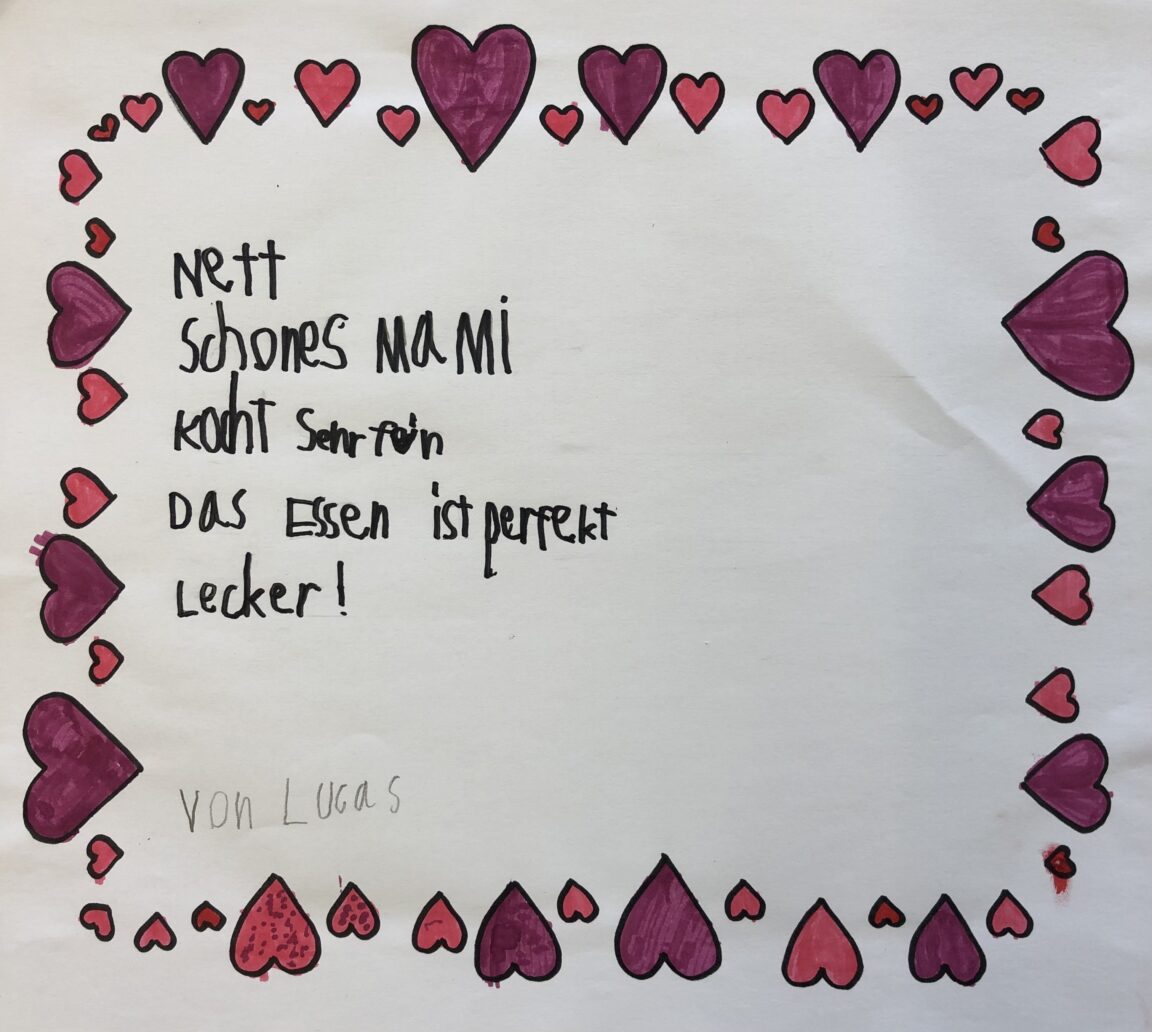 Nett
Schones Mami
Kocht Sehr fein
Das Essen ist perfekt
Lecker!
von Lucas